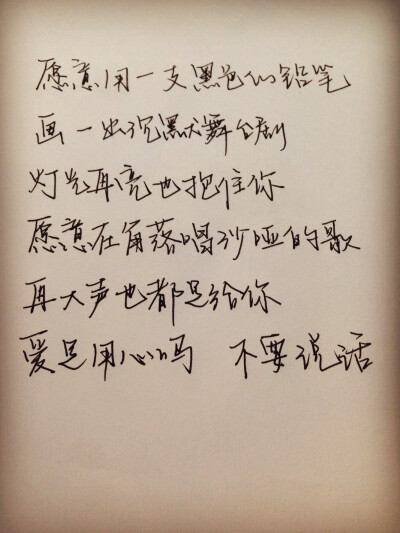 愿意用一支黑色的铅笔
画一出沉默舞台剧
灯光再亮也抱住你
愿意在角落唱沙哑的歌
再大声也都是给你
爱是用心吗 不要说话